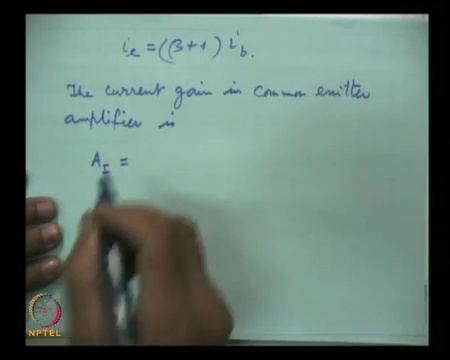 i_e = (β+1) i_b.
The current gain in common emitter
amplifier is
A_I =
NPTEL